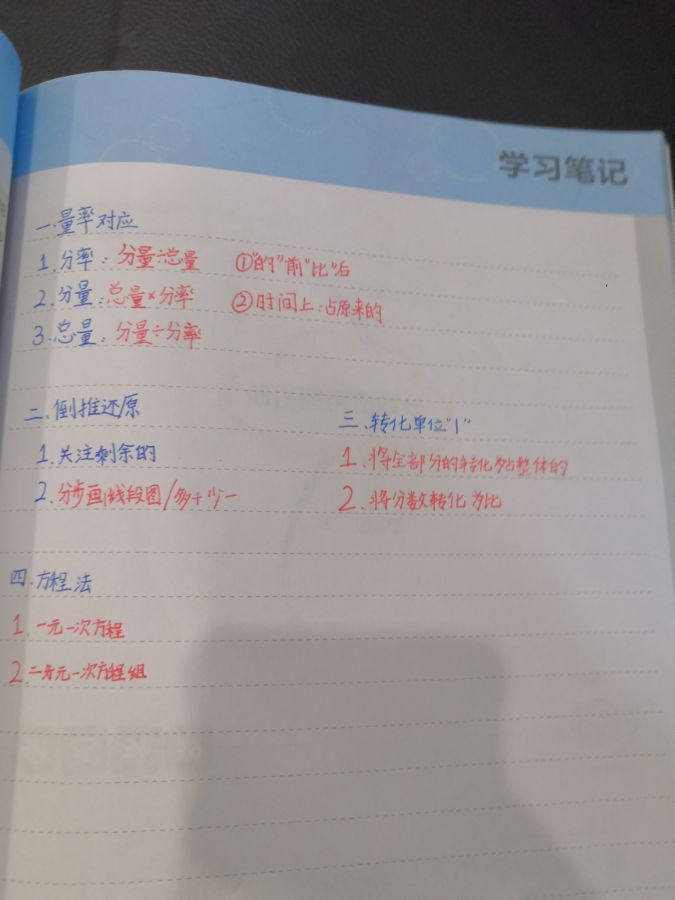 学习笔记
一.量率对应
1.分率：分量÷总量 ①"的"前"比"后
2.分量：总量×分率 ②时间上：占原来的
3.总量：分量÷分率
二.倒推还原
1.关注剩余的
2.分步画线段图/多+少-
三.转化单位"1"
1.将全部分的转化为占整体的
2.将分数转化为比
四.方程法
1.一元一次方程
2.二元一次方程组